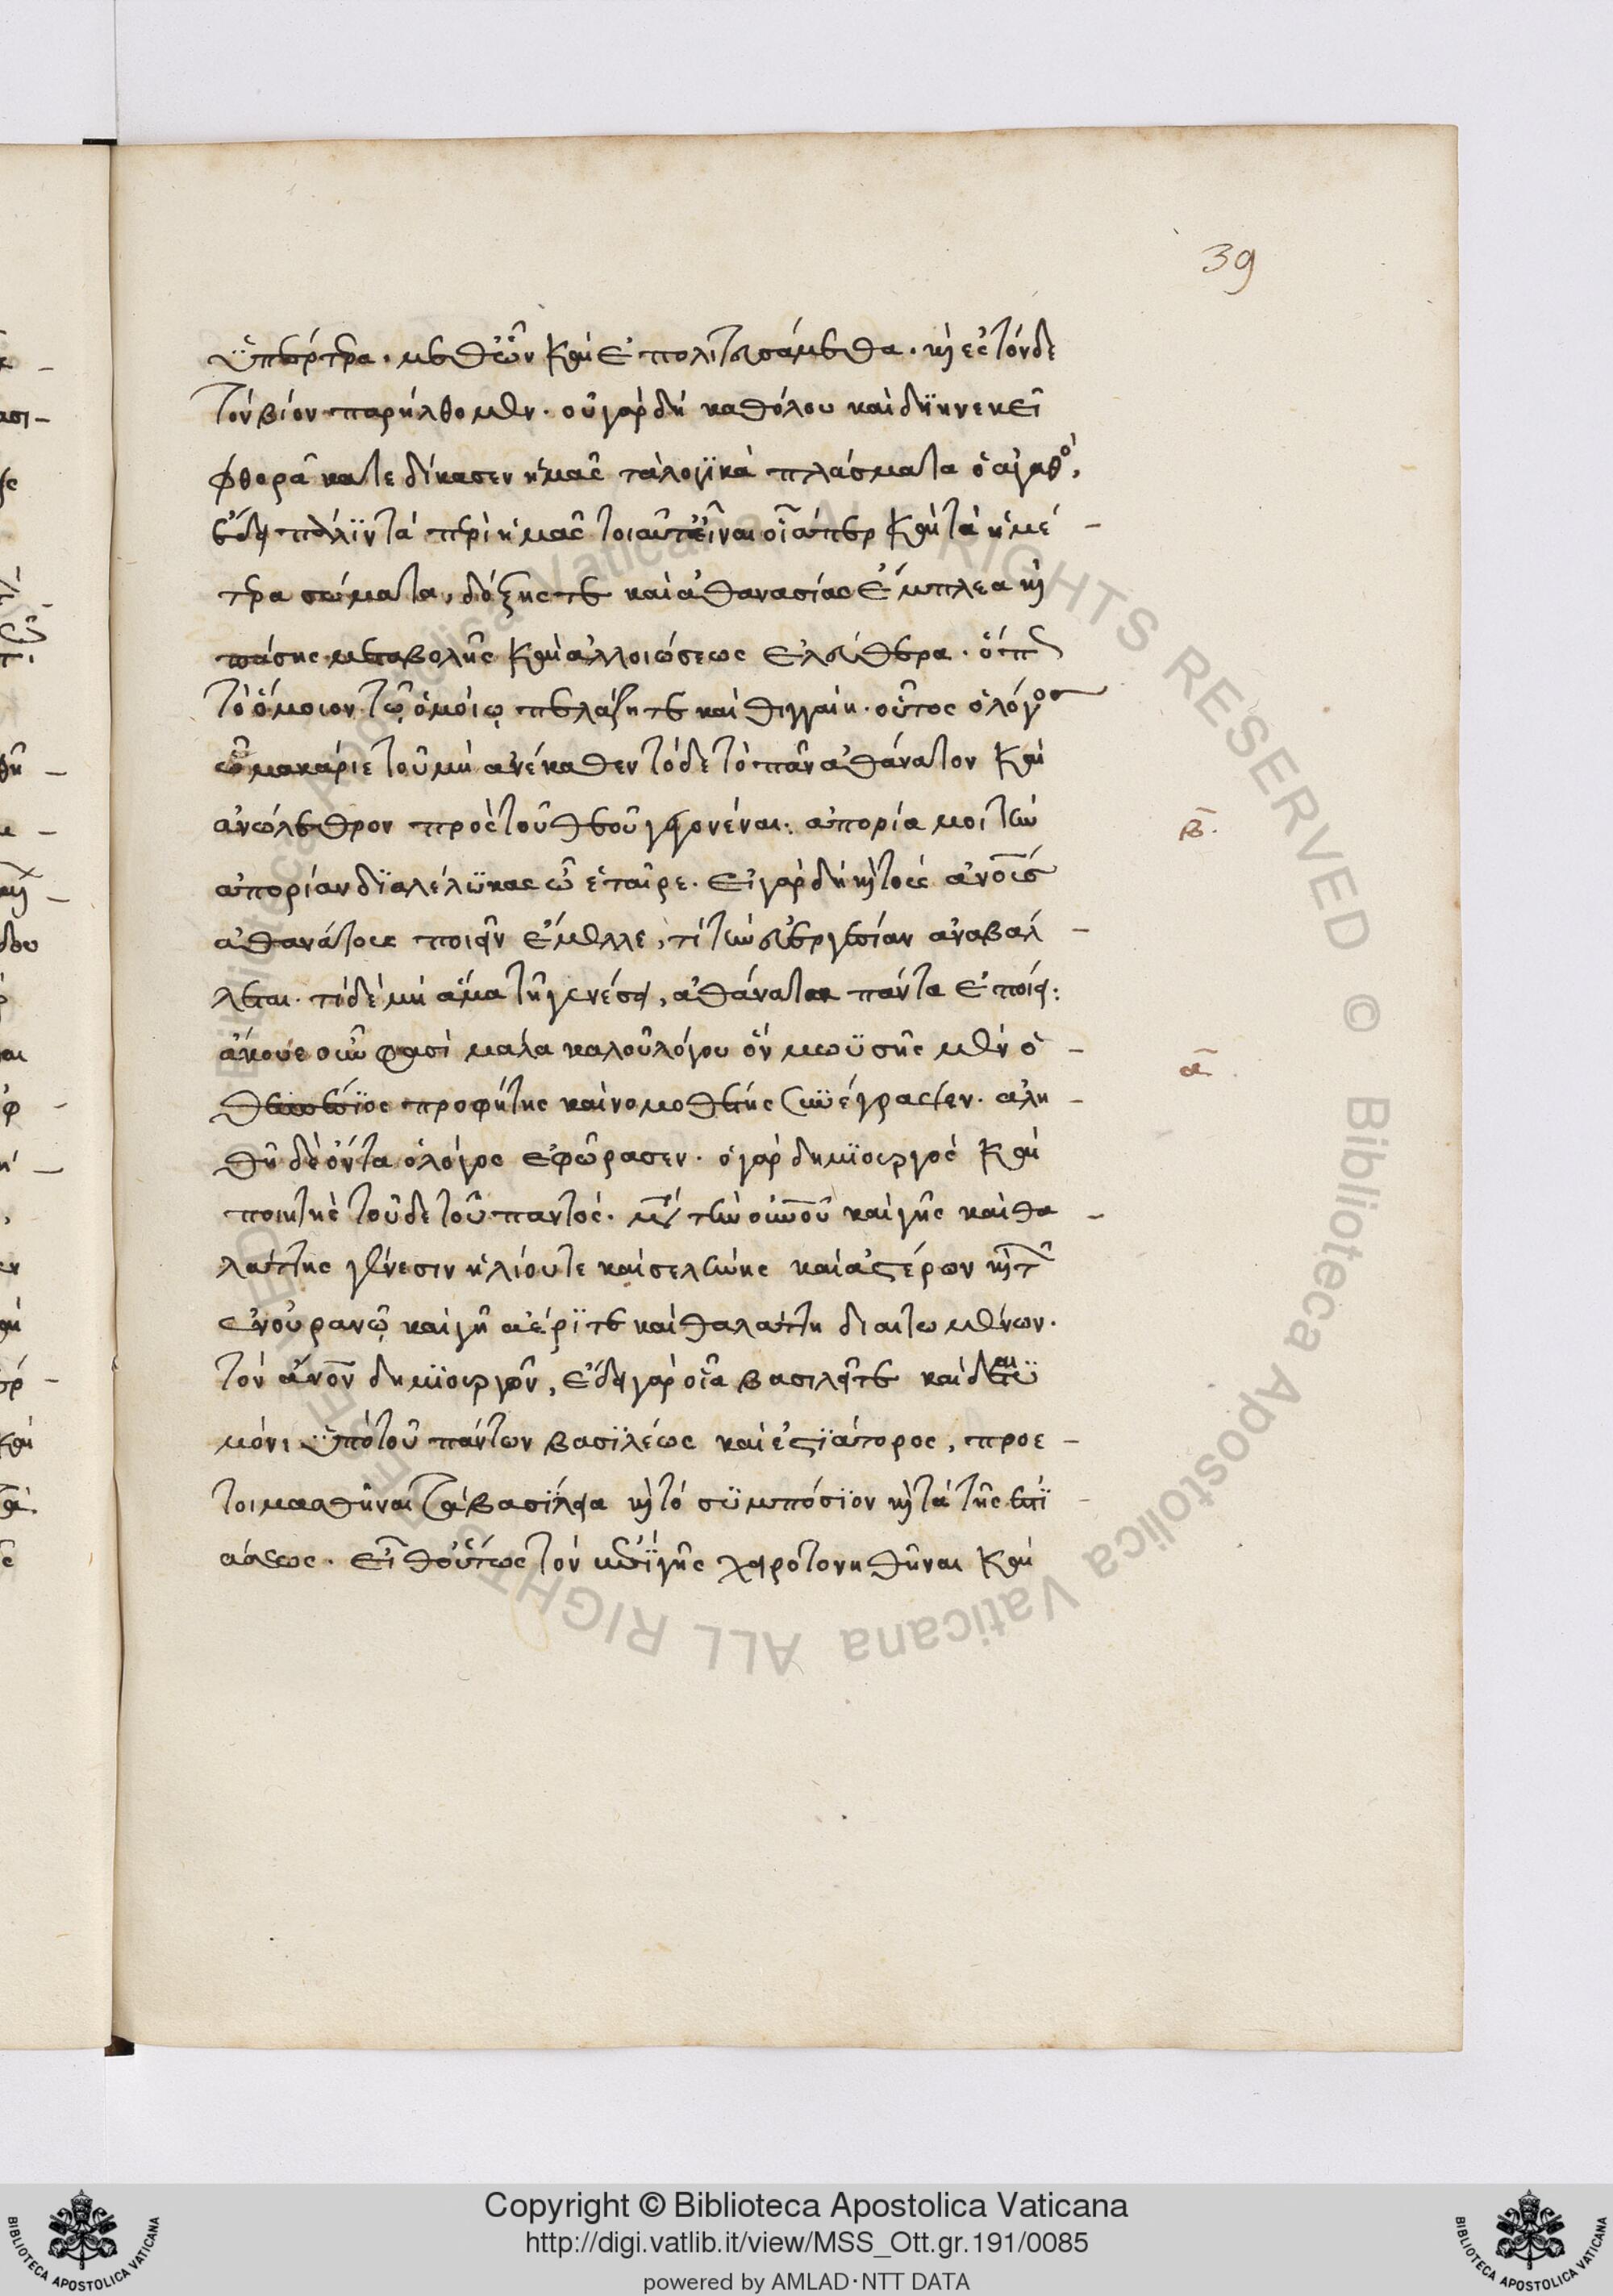 39
ὑπέρτερα. μεθ' ὧν καὶ ἐπολιτευσάμεθα. καὶ ἐς τόνδε
τὸν βίον παρήλθομεν. οὐ γὰρ δὴ καθόλου καὶ διηνεκεῖ
φθορᾷ κατεδίκασεν ἡμᾶς τὰ λογικὰ πλάσματα ὁ ἀγαθὸς,
ἔδει πάλιν τὰ περὶ ἡμᾶς τοιαῦτ' εἶναι οἷάπερ καὶ τὰ ἡμέ-
τερα σώματα, δόξης τε καὶ ἀθανασίας ἔμπλεα καὶ
πάσης μεταβολῆς καὶ ἀλλοιώσεως ἐλεύθερα. ὅπως
τὸ ὅμοιον τῷ ὁμοίῳ πελάζῃ τε καὶ θιγγαίη. οὗτος ὁ λόγος
ὦ μακάριε τοῦ μὴ ἀνέκαθεν τόδε τὸ πᾶν ἀθάνατον καὶ
ἀνώλεθρον πρὸς τοῦ θεοῦ γεγονέναι: ἀπορία μοι τὴν
ἀπορίαν διαλέλυκας ὦ ἑταῖρε. εἰ γὰρ δὴ καὶ τοὺς ἀνους
ἀθανάτους ποιεῖν ἔμελλε, τί τὴν εὐεργεσίαν ἀναβάλ-
λεται. τί δὲ μὴ ἅμα τῇ γενέσει, ἀθάνατα πάντα ἐποίει:
ἄκουε οὖν φασὶ μάλα καλοῦ λόγου ὃν μωϋσῆς μὲν ὁ -
θεσπέσιος προφήτης καὶ νομοθέτης συνέγραψεν. ἀλη-
θῆ δὲ ὄντα ὁ λόγος ἐφώρασεν. ὁ γὰρ δημιουργὸς καὶ
ποιητὴς τοῦδε τοῦ παντός. μετὰ τὴν οὐνοῦ καὶ γῆς καὶ θα-
λάττης γένεσιν ἡλίου τε καὶ σελήνης καὶ ἀστέρων καὶ τῶν
ἐν οὐρανῷ καὶ γῇ ἀέρι τε καὶ θαλάττῃ διαιτωμένων.
τὸν ἄνον δημιουργεῖ, ἔδει γὰρ οἷα βασιλεῖ τε καὶ δαιτυ
μόνι ὑπὸ τοῦ πάντων βασιλέως καὶ ἑστιάτορος, προε-
τοιμασθῆναι τὰ βασίλεια καὶ τὸ συμπόσιον καὶ τὰ τῆς ἑστι-
άσεως. εἶθ' οὕτως τὸν ἐπὶ γῆς χειροτονηθῆναι καὶ
β.
α.
Copyright © Biblioteca Apostolica Vaticana
http://digi.vatlib.it/view/MSS_Ott.gr.191/0085
powered by AMLAD·NTT DATA
BIBLIOTECA APOSTOLICA VATICANA
BIBLIOTECA APOSTOLICA VATICANA
© Biblioteca Apostolica Vaticana ALL RIGHTS RESERVED
© Biblioteca Apostolica Vaticana ALL RIGHTS RESERVED